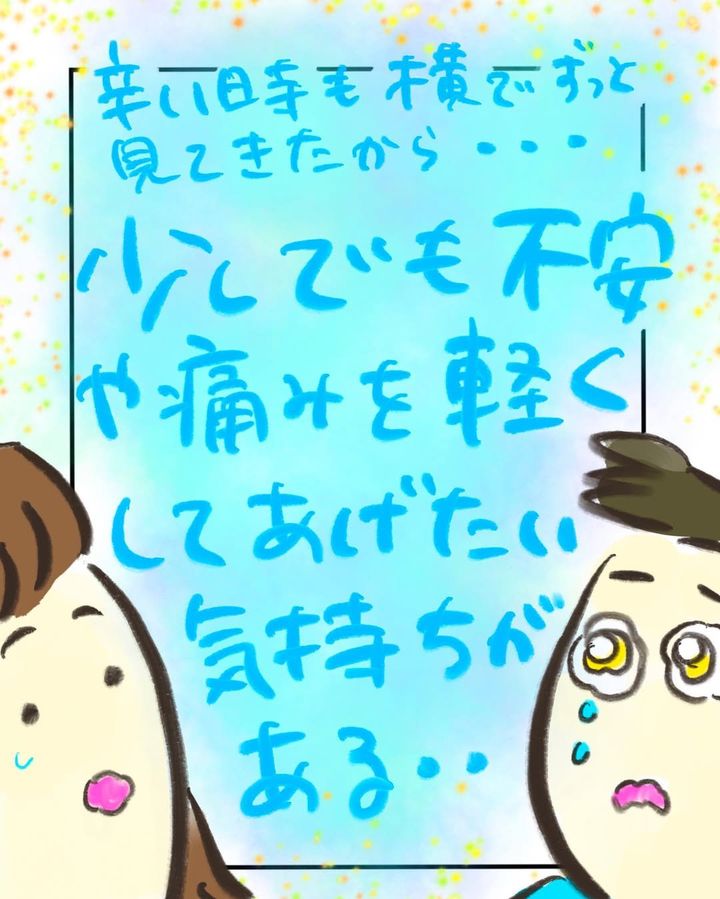 辛い時も横でずっと
見てきたから・・・
少しでも不安
や痛みを軽く
してあげたい
気持ちが
ある・・